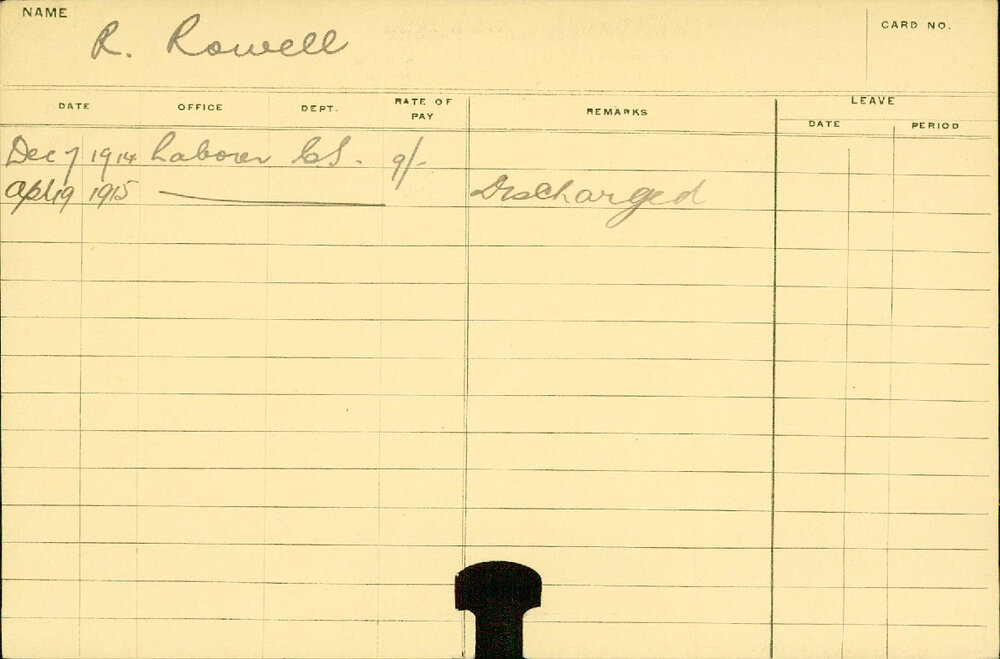 NAME R. Rowell CARD NO.
DATE OFFICE DEPT. RATE OF PAY REMARKS LEAVE
DATE PERIOD
Dec 7 1914 Laborer 9/-
Apl 19 1915 Discharged